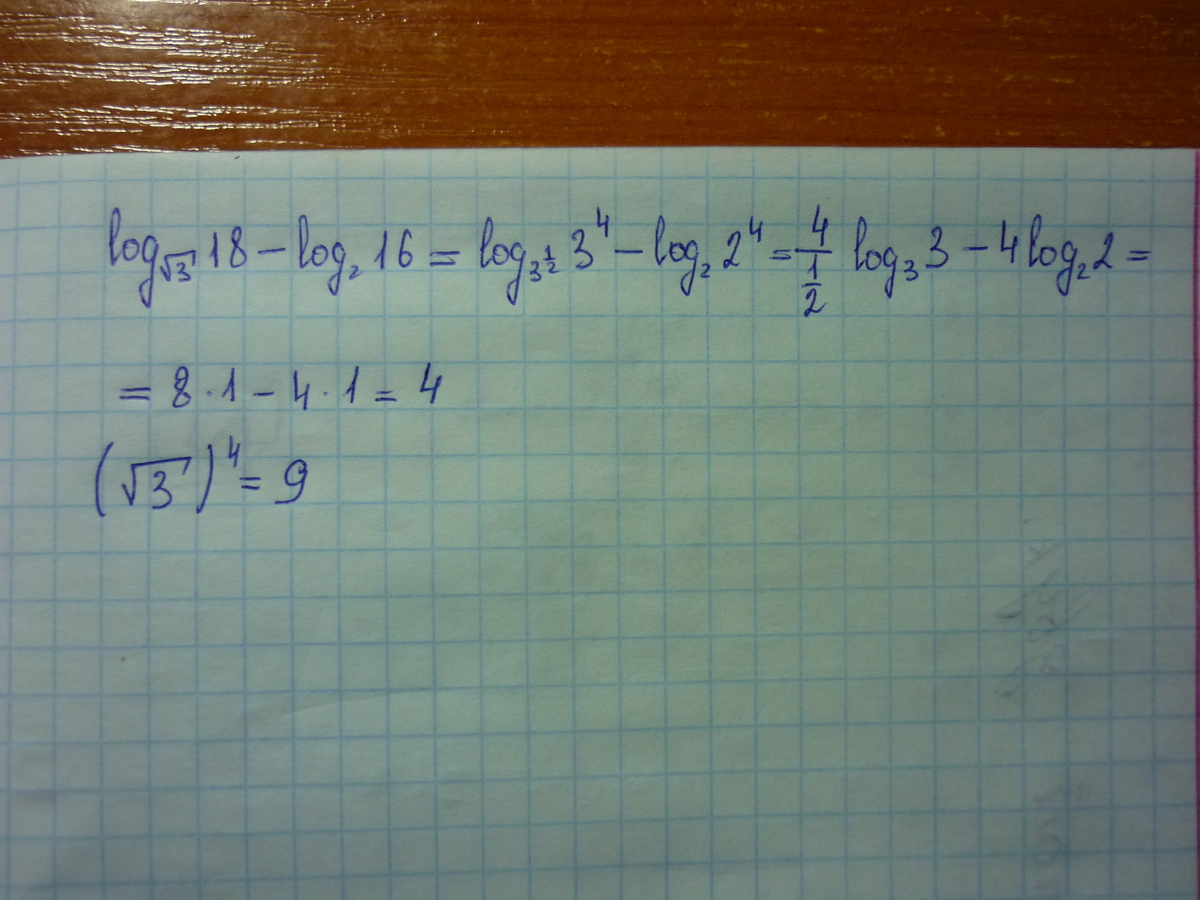 log_{√3} 18 − log_2 16 = log_{3^{1/2}} 3^4 − log_2 2^4 = 4/(1/2) log_3 3 − 4 log_2 2 =
= 8 · 1 − 4 · 1 = 4
(√3)^4 = 9